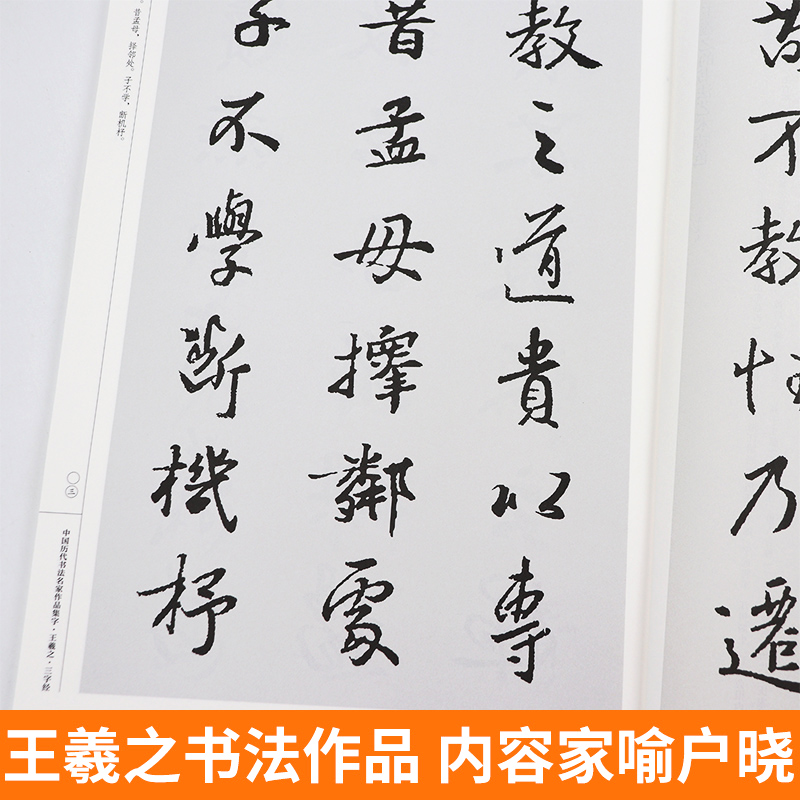 苟不教性乃遷
教之道貴以專
昔孟母擇鄰處
子不學斷機杼
。昔孟母，择邻处。子不学，断机杼。
〇三
中国历代书法名家作品集字·王羲之·三字经
王羲之书法作品 内容家喻户晓